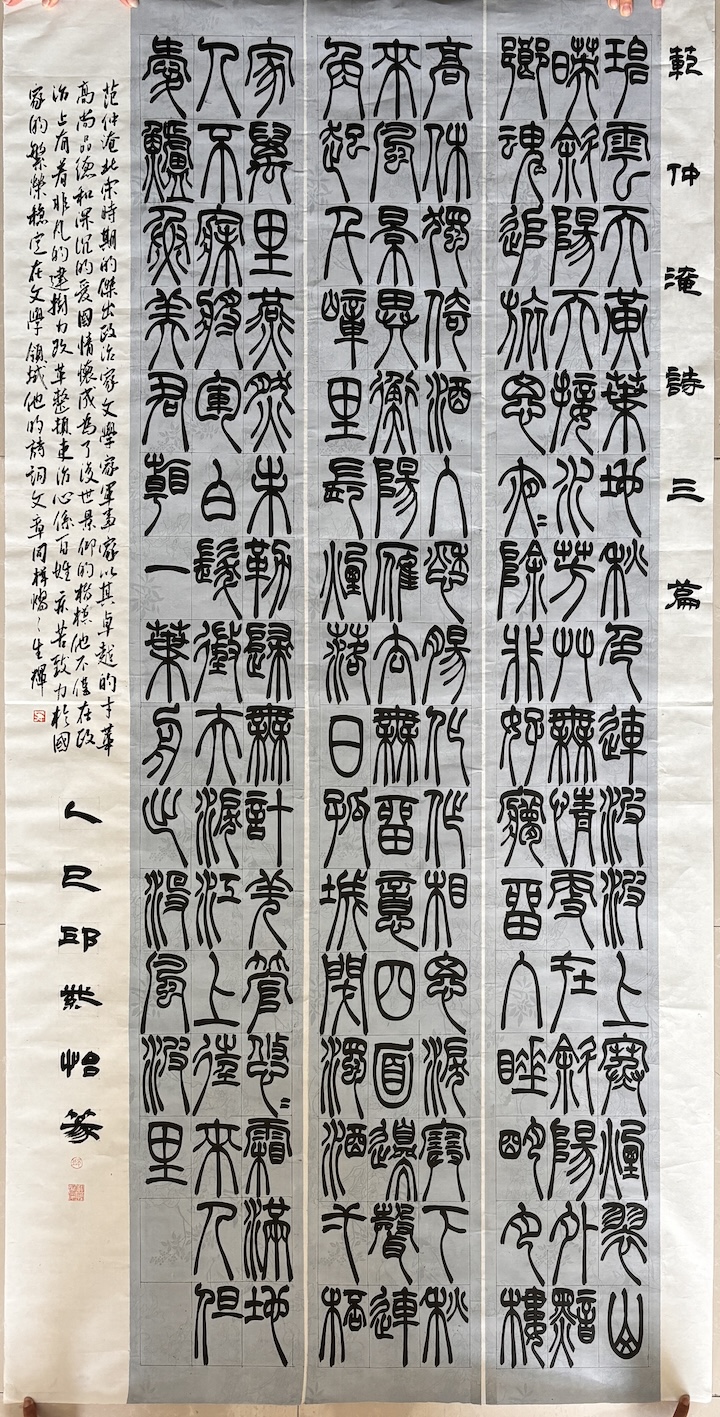 範仲淹詩三篇
碧雲天黃葉地秋色連波波上寒煙翠山
映斜陽天接水芳草無情更在斜陽外黯
鄉魂追旅思夜〻除非好夢留人睡明月樓
高休獨倚酒入愁腸化作相思淚塞下秋
來風景異衡陽雁去無留意四面邊聲連
角起千嶂里長煙落日孤城閉濁酒一杯
家萬里燕然未勒歸無計羌管悠〻霜滿地
人不寐將軍白髮徵夫淚江上往來人但
愛鱸魚美君看一葉舟出沒風波里
范仲淹北宋時期的傑出政治家文學家軍事家以其卓越的才華
高尚品德和深沉的爱國情懷成為了後世景仰的楷模他不僅在政
治上有着非凡的建樹力改革整頓吏治心係百姓疾苦致力於國
家的繁榮穩定在文學領域他的詩詞文章同樣熠〻生輝
乙巳邱紫怡篆